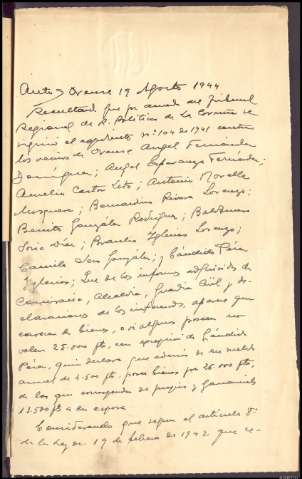 Auto) Orense 19 Agosto 1944
Resultando que por acuerdo del Tribunal
Regional de R. Políticas de la Coruña se
siguió el expediente nº 104 de 1941 contra
los vecinos de Orense Angel Fernández
Domínguez; Angel Esperanza Fernández;
Amelia Castor; Antonio Novelle
Mosquera; Bernardino Rivas Lorenzo;
Benito González Rodríguez; Baldomero
Soria Díaz; Rosalía Iglesias Lorenzo;
Camilo González; y Cándido Pérez
Iglesias; Que de los informes adquiridos de
Comisaría, Alcaldía, Guardia Civil y de-
claraciones de los informados, aparece que
carecen de bienes, o si algunos poseen no
valen 25.000 pts, con excepción de Cándido
Pérez, quien declara que además de su sueldo
anual de 4.500 pts. posee bienes por 26.000 pts,
de los que corresponden de propios y gananciales
13.500 pts a su esposa
Considerando que según el artículo 8º
de la Ley de 19 de febrero de 1942 que re-